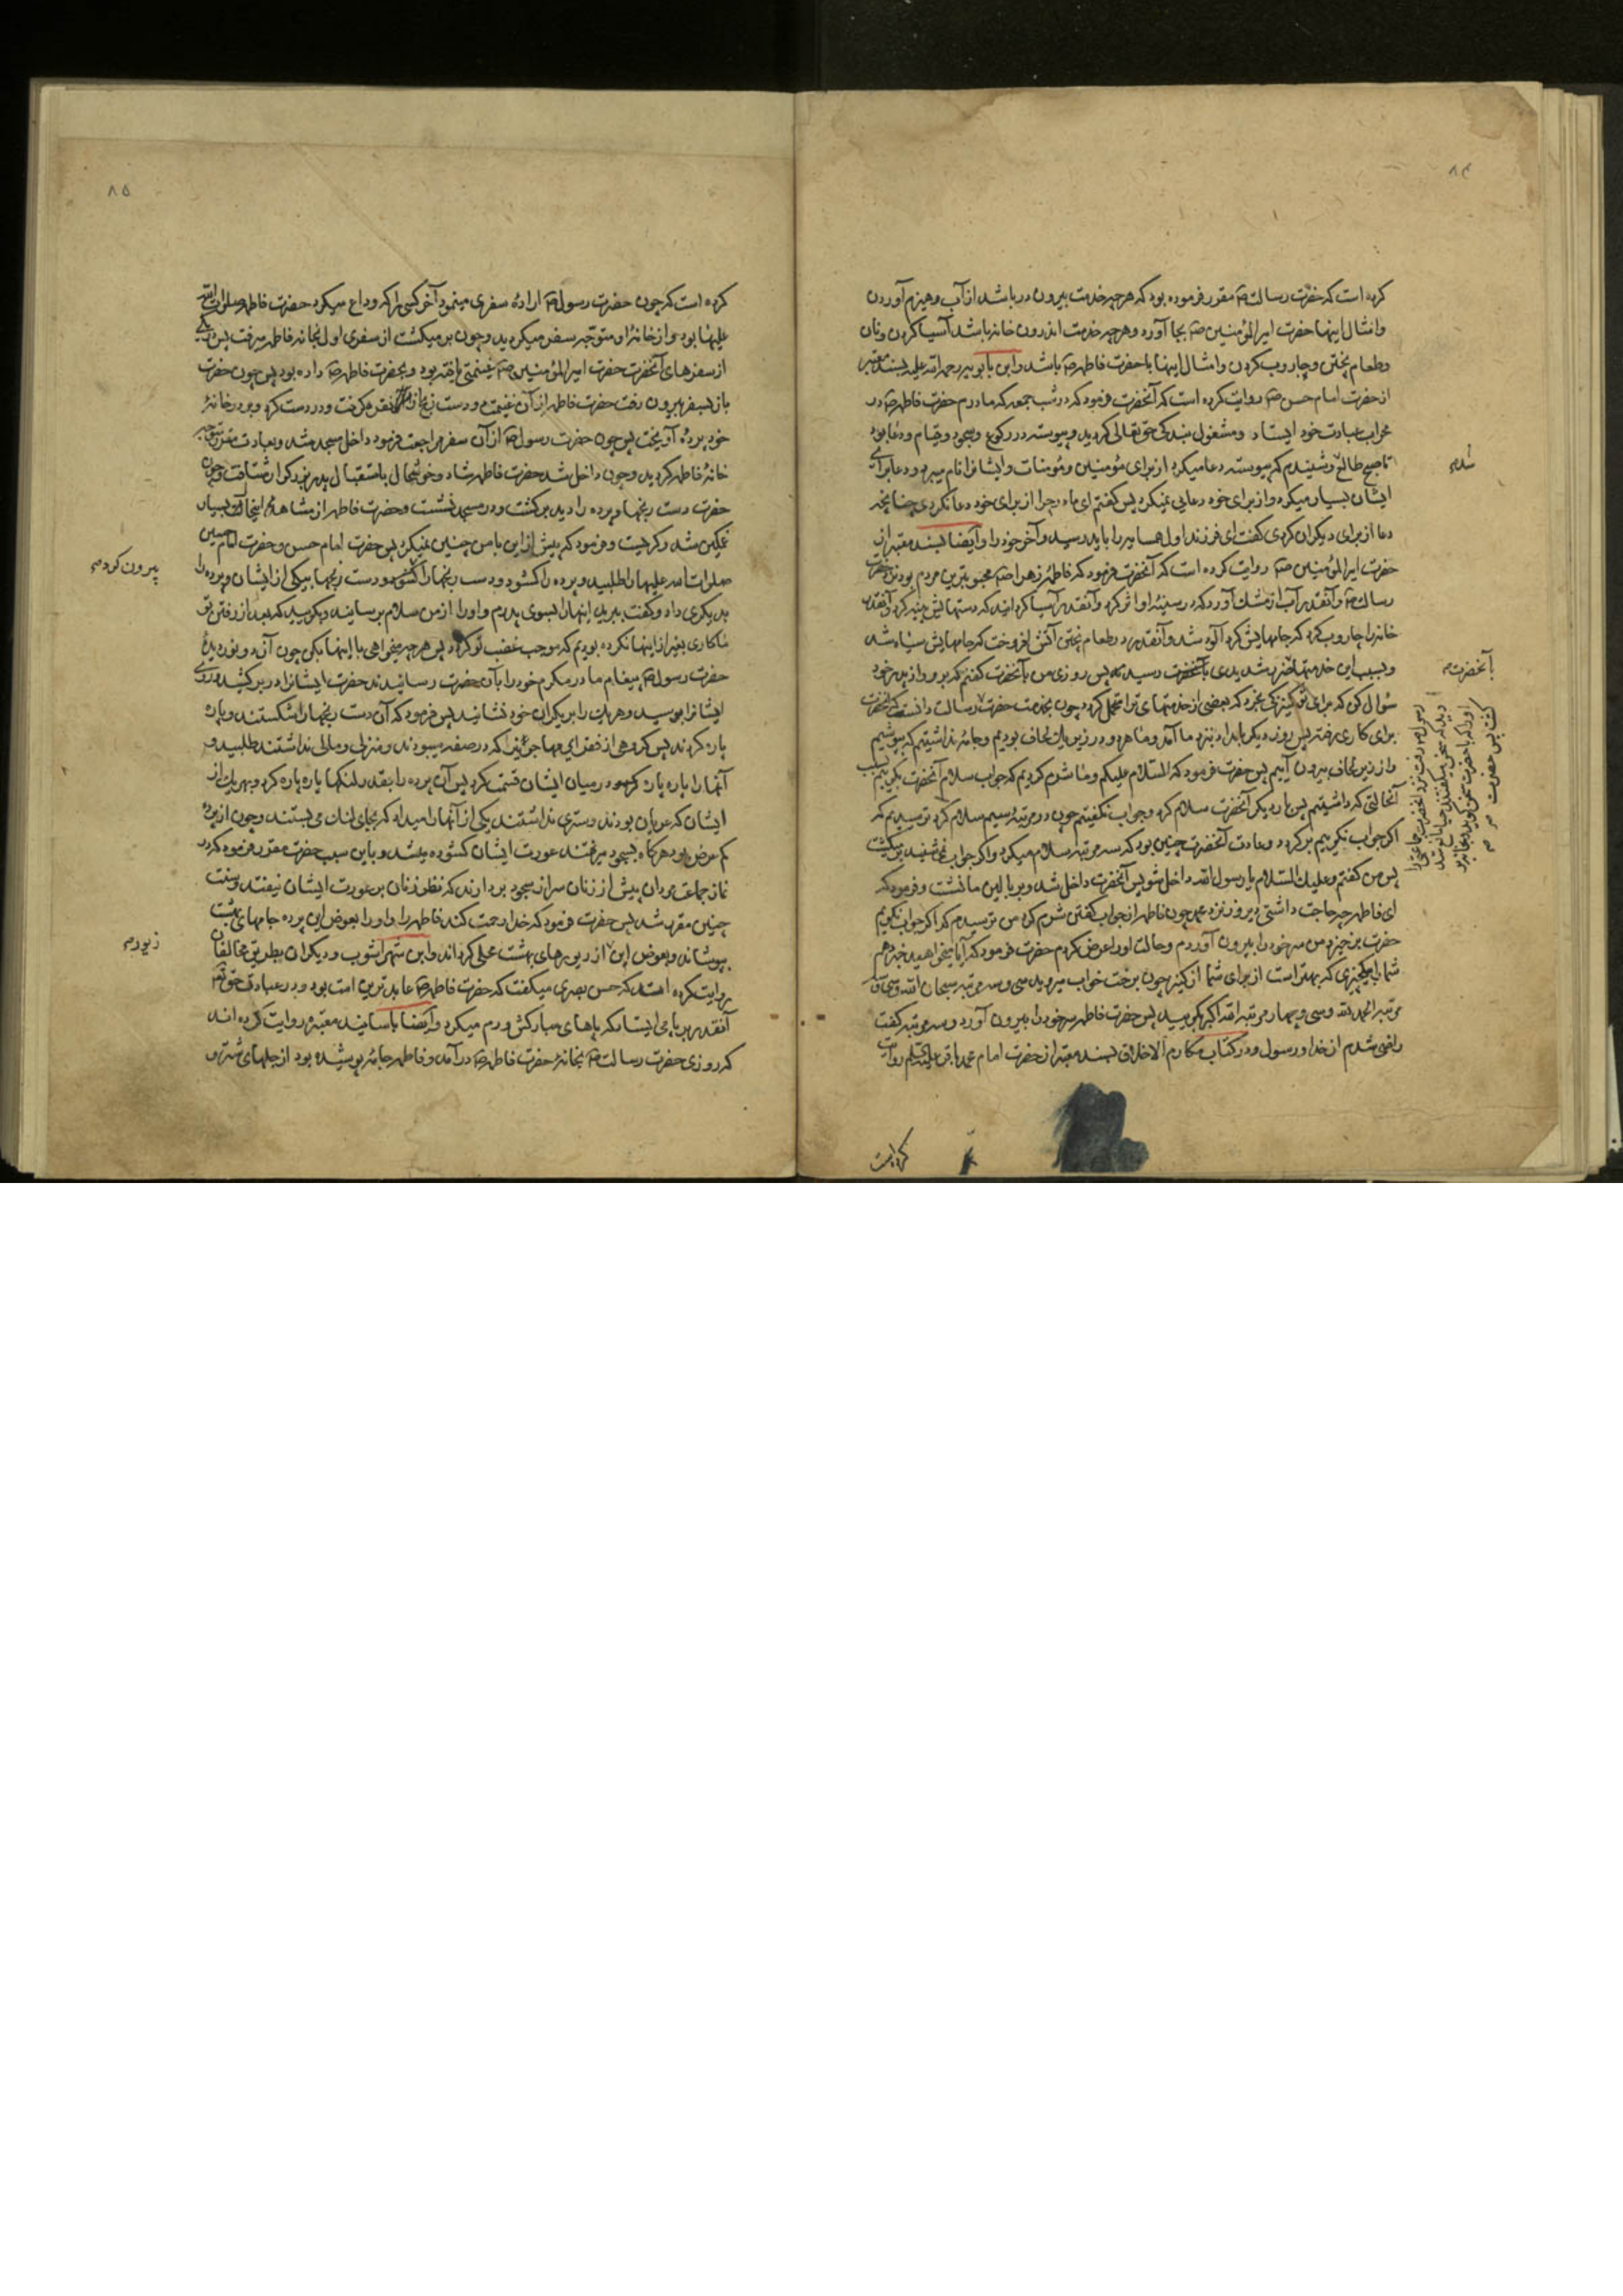 ۸۴
کرده است که حضرت رسالت ص مقرر فرموده بود که هر چه خدمت بیرون در باشد از آب و هیزم آوردن
و امثال اینها حضرت امیرالمؤمنین ص بجا آورد و هر چه خدمت اندرون خانه باشد آسیا کردن و نان
و طعام پختن و جاروب کردن و امثال اینها با حضرت فاطمه ص باشد و ابن بابویه رحمه الله علیه بسند معتبر
از حضرت امام حسن ص روایت کرده است که آنحضرت فرمود که در شب جمعه که مادرم حضرت فاطمه ص در
محراب عبادت خود ایستاد و مشغول بندگی حق تعالی گردید و پیوسته در رکوع و سجود و قیام و دعا بود
تا صبح طالع و شنیدم که پیوسته دعا میکرد از برای مؤمنین و مؤمنات و ایشانرا نام میبرد و دعا برای
شد م
ایشان بسیار میکرد و از برای خود دعایی نمیکرد پس گفتم ای مادر چرا از برای خود دعا نکردی چنانچه
دعا از برای دیگران کردی گفت ای فرزند اول همسایه را باید رسید و آخر خود را و ایضا بسند معتبر از
حضرت امیرالمؤمنین ص روایت کرده است که آنحضرت فرمود که فاطمه زهرا ص محبوبترین مردم بود نزد حضرت
رسالت ص و آنقدر آب از مشک آورد که در سینهٔ او اثر کرد و آنقدر آسیا گردانید که دستهایش پینه کرد و آنقدر
خانه را جاروب کرد که جامهایش گرد آلود شد و آنقدر در طعام پختن آتش افروخت که جامهایش سیاه شد
و بسبب این خدمتها ضرر شدیدی بآنحضرت رسید پس روزی من بآنحضرت گفتم که برو و از پدر خود
آنحضرت م
سؤال کن که برای تو کنیزکی بخرد که بعضی از خدمتهای ترا متحمل گردد چون بخدمت حضرت رسالت دانست که آنحضرت
رسول ص رفت نزد آنحضرت جماعتی را
دید که سخن میگفتند حیا مانع شد
او را که با حضرت سخن گوید و بخانه بر
گشت پس حضرت
برای کاری رفته پس روز دیگر بامداد بنزد ما آمد و ما هر دو در زیر یک لحاف بودیم و جامه نداشتیم که بپوشیم
و از زیر لحاف بیرون آییم پس حضرت فرمود که السلام علیکم و ما شرم کردیم که جواب سلام آنحضرت بگوییم بسبب
آنحالتی که داشتیم پس بار دیگر آنحضرت سلام کرد و جواب نگفتیم چون در مرتبهٔ سیم سلام کرد ترسیدیم که
اگر جواب نگوییم برگردد و عادت آنحضرت چنین بود که سه مرتبه سلام میکرد و اگر جواب نمی شنید بر میگشت
پس من گفتم و علیک السلام یا رسول الله داخل شو پس آنحضرت داخل شد و بر بالین ما نشست و فرمود که
ای فاطمه چه حاجت داشتی دیروز نزد محمد چون فاطمه از جواب گفتن شرم کرد من ترسیدم که اگر جواب نگویم
حضرت برخیزد من سر خود را بیرون آوردم و حالت او را عرض کردم حضرت فرمود که آیا میخواهید خبر دهم
شما را بچیزی که بهتر است از برای شما از کنیز چون برخت خواب میروید سی و سه مرتبه سبحان الله و سی و سه
مرتبه الحمد لله و سی و چهار مرتبه الله اکبر بگویید پس حضرت فاطمه سر خود را بیرون آورد و سه مرتبه گفت
راضی شدم از خدا و رسول و در کتاب مکارم الاخلاق بسند معتبر از حضرت امام محمد باقر علیه السلم روایت
کرده است
۸۵
کرده است که چون حضرت رسول ص ارادهٔ سفری مینمود آخر کسی را که وداع میکرد حضرت فاطمه صلوات الله
علیها بود و از خانهٔ او متوجه سفر میگردید و چون بر میگشت از سفری اول بخانه فاطمه میرفت پس در یکی
از سفرهای آنحضرت حضرت امیرالمؤمنین ص غنیمتی یافته بود و بحضرت فاطمه ص داده بود پس چون حضرت
باز بسفر بیرون رفت حضرت فاطمه از آن غنیمت دو دست رنجن از نقره گرفت و در دست کرد و بر در خانهٔ
خود پرده آویخت پس چون حضرت رسول ص از آن سفر مراجعت فرمود داخل مسجد شد و بعادت مقرر متوجه
خانهٔ فاطمه گردید و چون داخل شد حضرت فاطمه شاد و خوشحال باستقبال پدر بزرگوار شتافت و چون
حضرت دست رنجها و پرده را دید برگشت و در مسجد نشست و حضرت فاطمه از مشاهدهٔ اینحالت بسیار
غمگین شد و گریست و فرمود که پیش از این با من چنین نمیکرد پس حضرت امام حسن و حضرت امام حسین
صلوات الله علیهما را طلبید و پرده را گشود و دست رنجها را گشود و دست رنجها بیکی از ایشان و پرده را
بیرون کرد م
بدیگری داد و گفت ببرید اینها را بسوی پدرم و او را از من سلام برسانید و بگویید که بعد از رفتن تو
ما کاری بغیر از اینها نکرده بودیم که موجب غضب تو گردد پس هر چه میخواهی با اینها بکن چون آن دو نوردیده
حضرت رسول ص پیغام مادر مکرم خود را بآن حضرت رسانیدند حضرت ایشانرا در بر کشید و روی
ایشانرا بوسید و هر یک را بر یک ران خود نشانید پس فرمود که آن دست رنجها را شکستند و پاره
پاره کردند پس گروهی از فقرای مهاجرین را که در صفه میبودند و منزلی و مالی نداشتند طلبید و
آنها را پاره پاره کرده در میان ایشان قسمت کرد پس آن پرده را بقدر لنگها پاره پاره کرد و بهر یک از
ایشان که عریان بودند و ستری نداشتند یکی از آنها را میداد که بجای لنگ می بستند و چون آن پرده
کم عرض بود هرگاه بسجود میرفتند عورت ایشان گشوده میشد و باین سبب حضرت مقرر فرموده که در
نماز جماعت مردان پیش از زنان سر از سجود بردارند که نظر زنان بر عورت ایشان نیفتد و سنت
چنین مقرر شد پس حضرت فرمود که خدا رحمت کند فاطمه را و او را بعوض این پرده جامهای بهشت
بپوشاند و بعوض این از زیورهای بهشت محلی گرداند و ابن شهر آشوب و دیگران بطریق مخالفان
زیور م
روایت کرده اند که حسن بصری میگفت که حضرت فاطمه ص عابدترین امت بود و در عبادت حق تعالی
آنقدر بر پا می ایستاد که پاهای مبارکش ورم میکرد و ایضا باسانید معتبره روایت کرده اند
که روزی حضرت رسالت ص بخانهٔ حضرت فاطمه ص در آمد و فاطمه جامهٔ پوشیده بود از جلهای شتر و